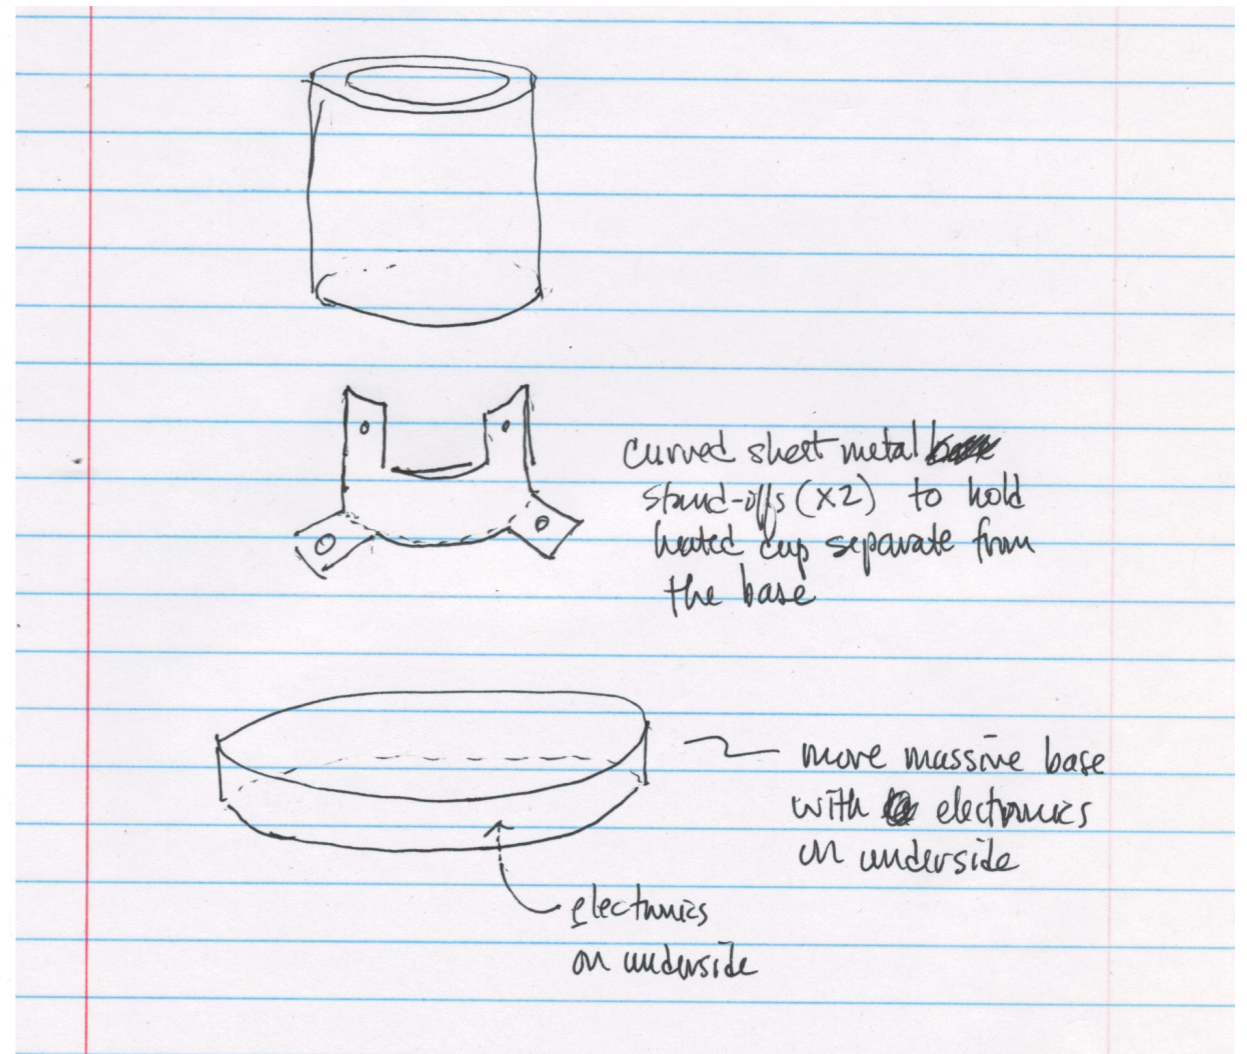 curved sheet metal
stand-offs (x2) to hold
heated cup separate from
the base
more massive base
with electronics
on underside
electronics
on underside